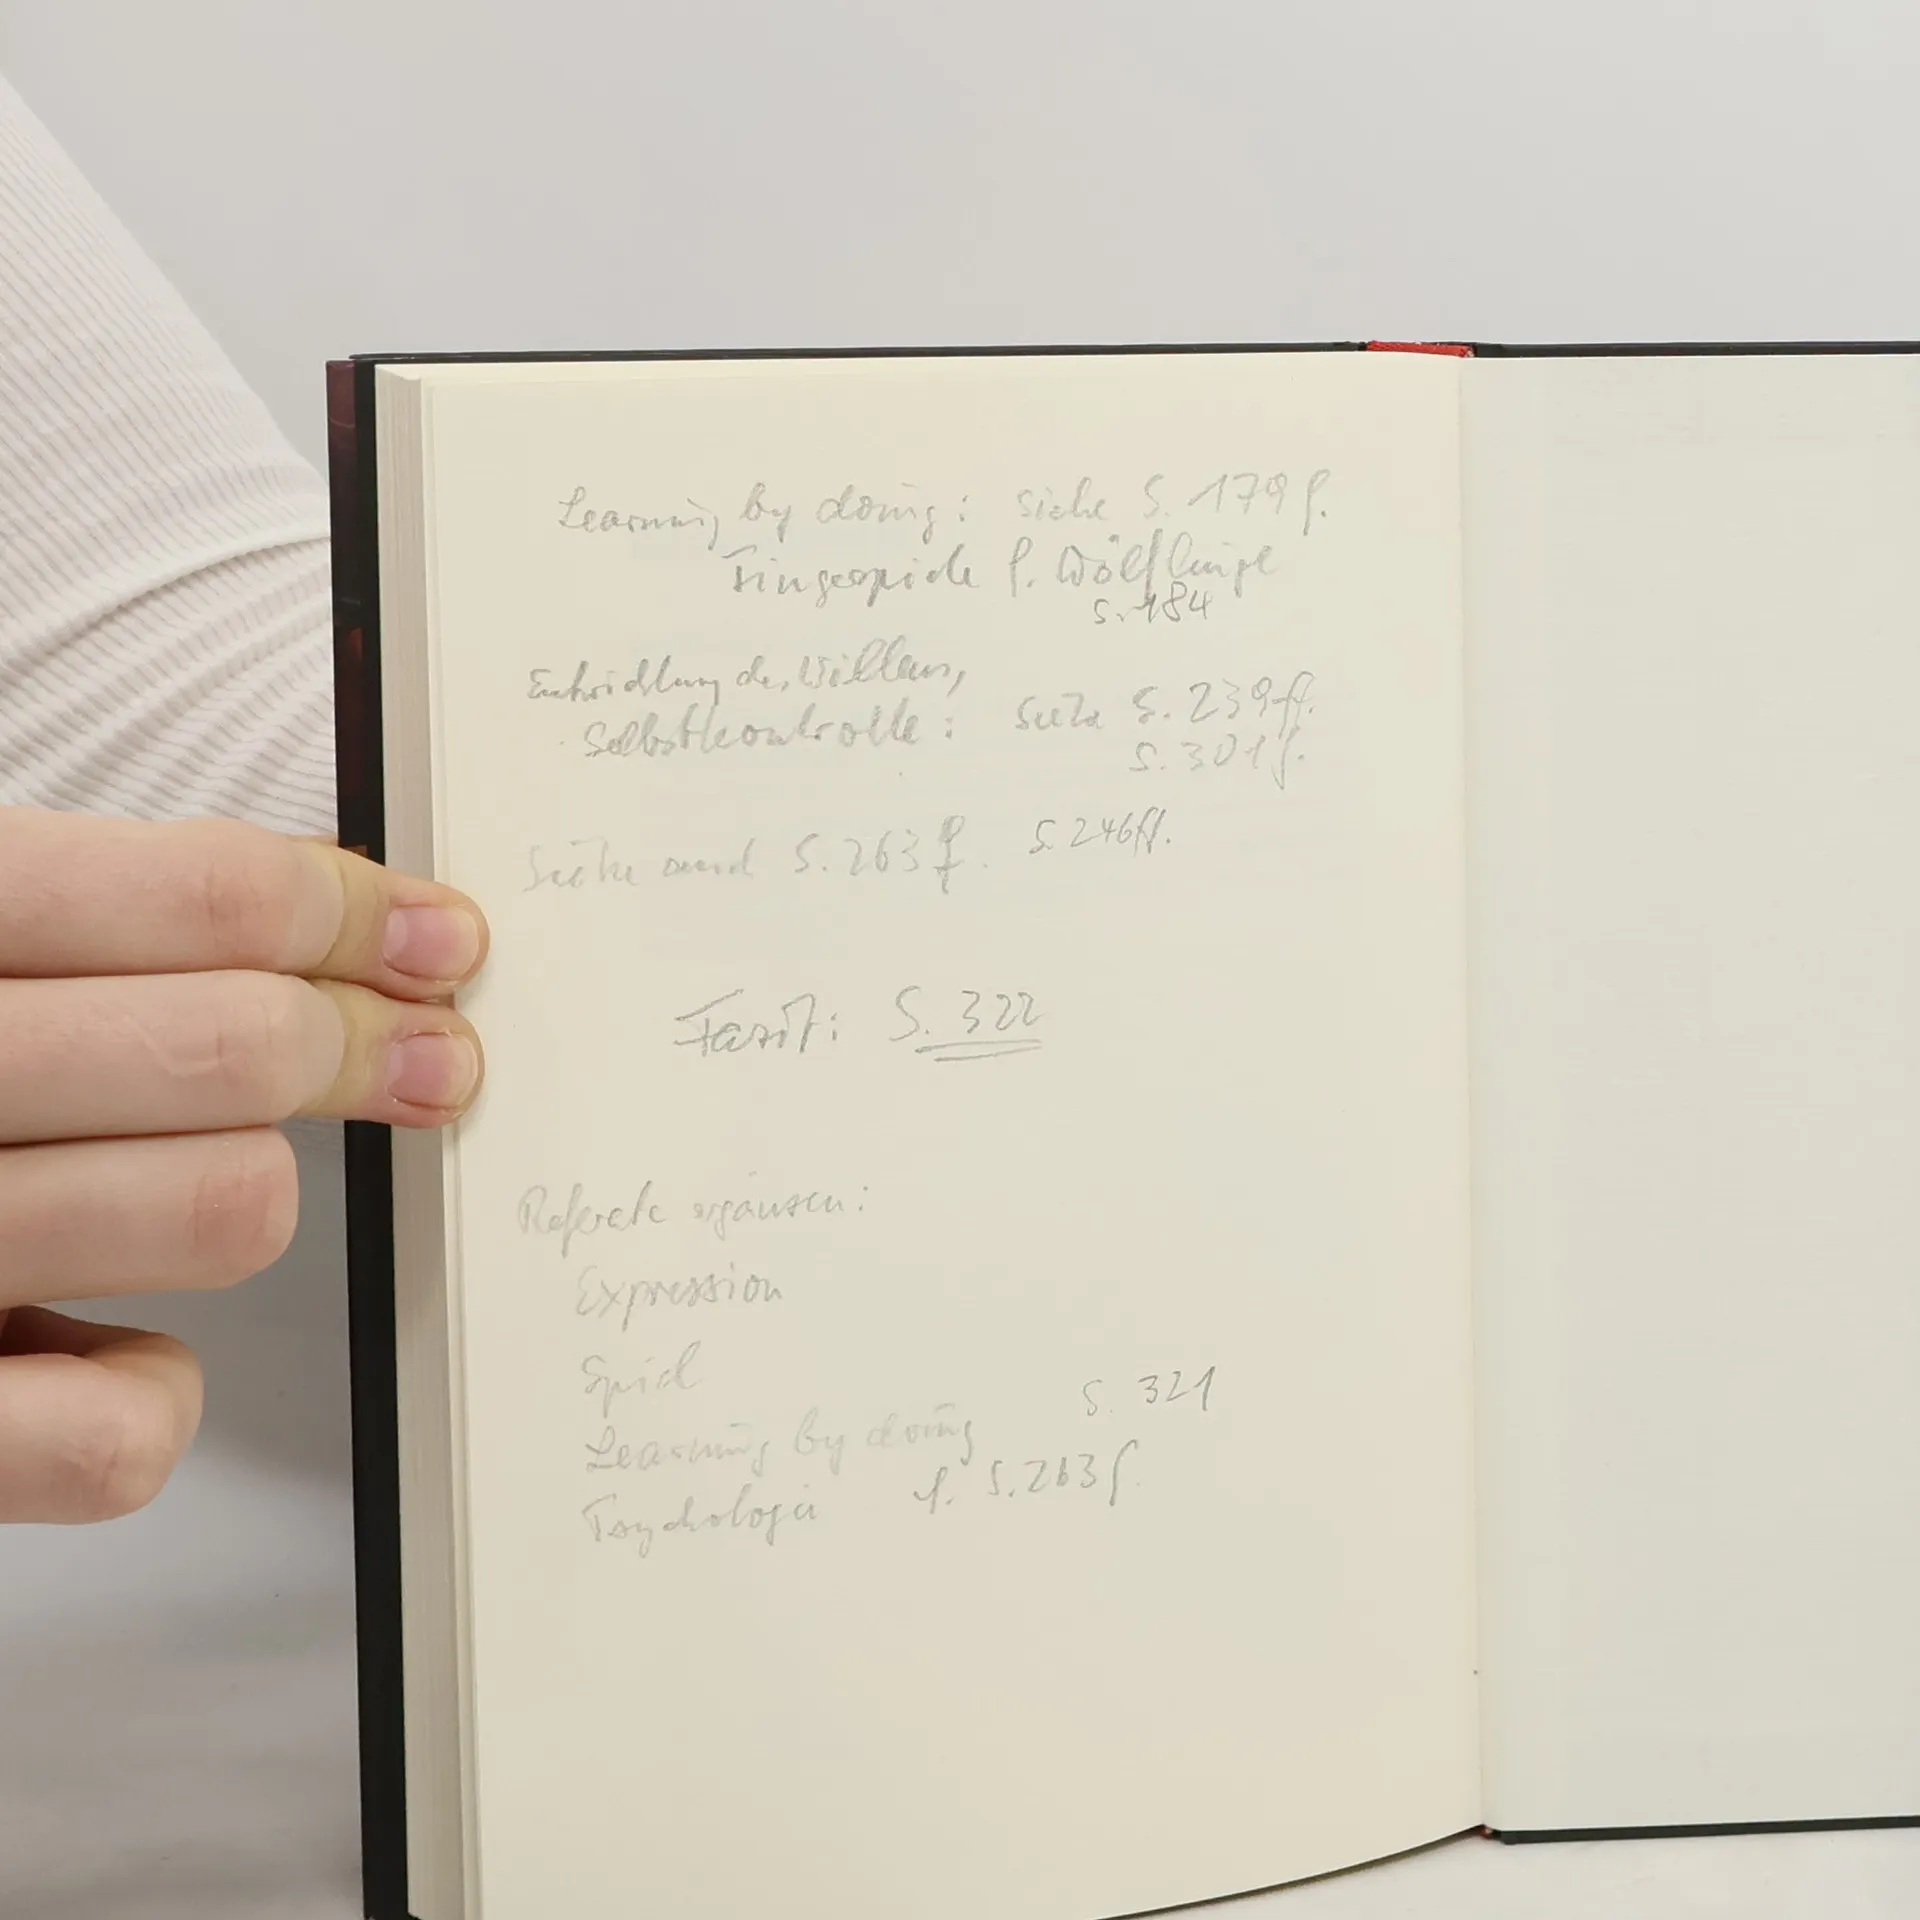 Learning by doing: siehe S. 179 f.
Fingerspiele f.
S. 184
Entwicklung des Willens,
Selbstkontrolle: siehe S. 239 ff.
S. 301 f.
S. 246 ff.
Siehe auch S. 263 f.
Fazit: S. 322
Referate ergänzen:
Expression
Spiel
Learning by doing S. 321
Psychologie f. S. 263 f.